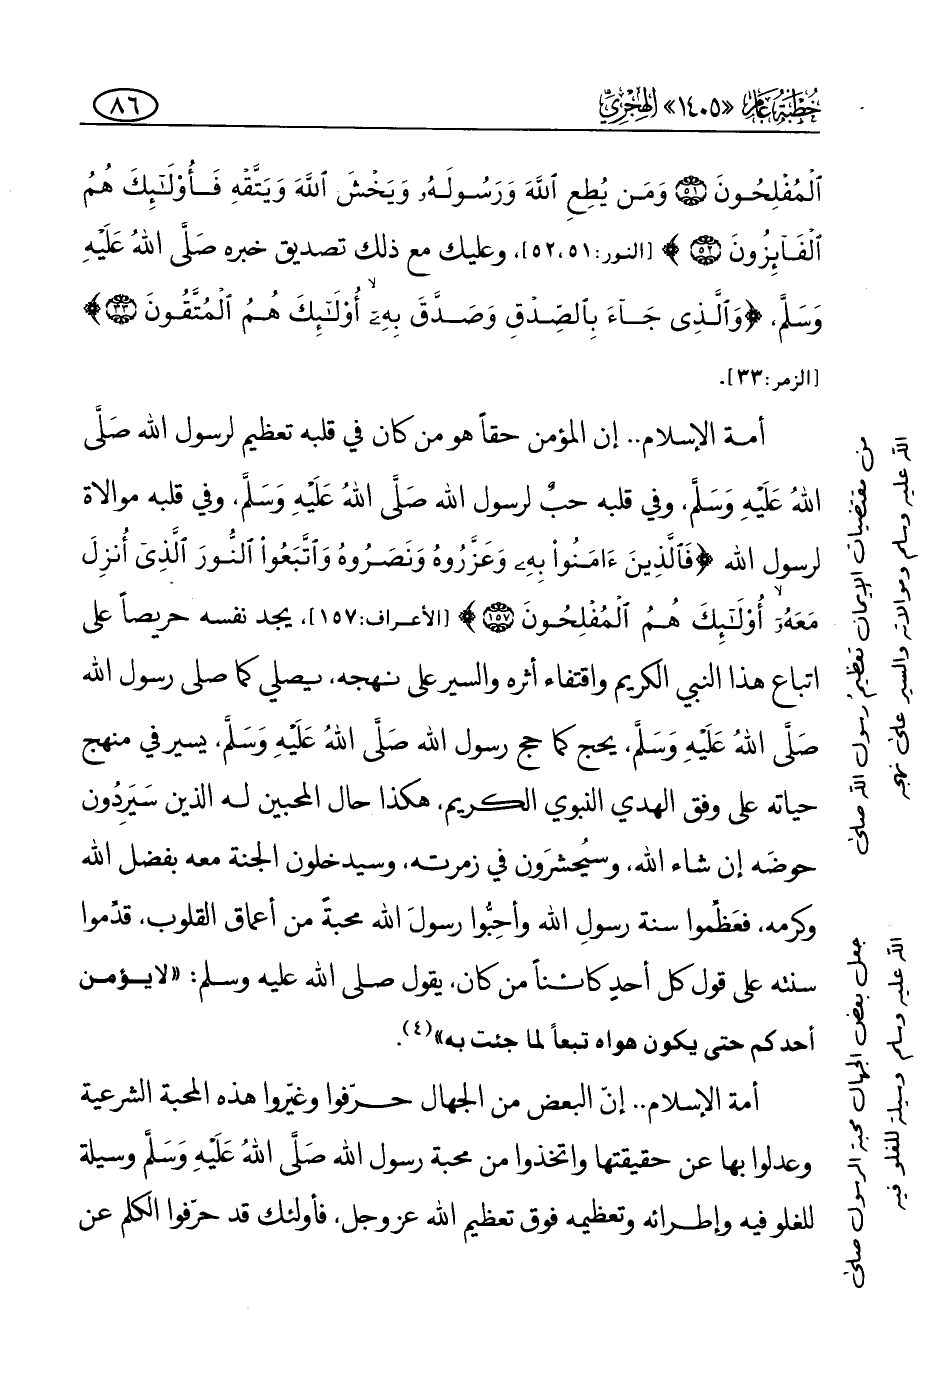 خُطْبَةُ عَامِ «١٤٠٥» الهِجْرِيِّ
٨٦
ٱلْمُفْلِحُونَ ٥١ وَمَن يُطِعِ ٱللَّهَ وَرَسُولَهُۥ وَيَخْشَ ٱللَّهَ وَيَتَّقْهِ فَأُوْلَٰٓئِكَ هُمُ
ٱلْفَآئِزُونَ ٥٢ ﴾ [النور:٥٢،٥١]، وعليك مع ذلك تصديق خبره صَلَّى اللهُ عَلَيْهِ
وَسَلَّمَ، ﴿وَٱلَّذِى جَآءَ بِٱلصِّدْقِ وَصَدَّقَ بِهِۦٓ ۙ أُوْلَٰٓئِكَ هُمُ ٱلْمُتَّقُونَ ٣٣﴾
[الزمر:٣٣].
أمة الإسلام.. إن المؤمن حقاً هو من كان في قلبه تعظيم لرسول الله صَلَّى
اللهُ عَلَيْهِ وَسَلَّمَ، وفي قلبه حبٌ لرسول الله صَلَّى اللهُ عَلَيْهِ وَسَلَّمَ، وفي قلبه موالاة
لرسول الله ﴿فَٱلَّذِينَ ءَامَنُوا۟ بِهِۦ وَعَزَّرُوهُ وَنَصَرُوهُ وَٱتَّبَعُوا۟ ٱلنُّورَ ٱلَّذِىٓ أُنزِلَ
مَعَهُۥٓ ۙ أُوْلَٰٓئِكَ هُمُ ٱلْمُفْلِحُونَ ١٥٧ ﴾ [الأعراف:١٥٧]، يجد نفسه حريصاً على
اتباع هذا النبي الكريم واقتفاء أثره والسير على نهجه، يصلي كما صلى رسول الله
صَلَّى اللهُ عَلَيْهِ وَسَلَّمَ، يحج كما حج رسول الله صَلَّى اللهُ عَلَيْهِ وَسَلَّمَ، يسير في منهج
حياته على وفق الهدي النبوي الكريم، هكذا حال المحبين له الذين سَيَرِدُون
حوضَه إن شاء الله، وسيُحشرَون في زمرته، وسيدخلون الجنة معه بفضل الله
وكرمه، فعَظِّموا سنة رسولِ الله وأحِبُّوا رسولَ الله محبةً من أعماق القلوب، قدِّموا
سنته على قول كل أحدٍ كائناً من كان، يقول صلى الله عليه وسلم: «لا يؤمن
أحدكم حتى يكون هواه تبعاً لما جئت به»(٤).
أمة الإسلام.. إنّ البعض من الجهال حرّفوا وغيّروا هذه المحبة الشرعية
وعدلوا بها عن حقيقتها واتخذوا من محبة رسول الله صَلَّى اللهُ عَلَيْهِ وَسَلَّم وسيلة
للغلو فيه وإطرائه وتعظيمه فوق تعظيم الله عز وجل، فأولئك قد حرّفوا الكلم عن
من مقتضيات الإيمان تعظيمُ رسول الله صلى
الله عليه وسلم وموالاته والسير على نهجه
جعل بعض الجهال محبة الرسول صلى
الله عليه وسلم وسيلة للغلو فيه